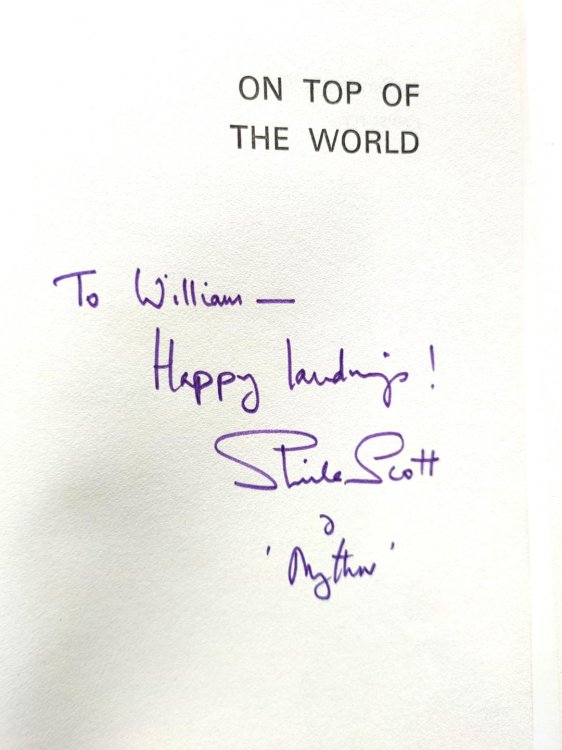 ON TOP OF
THE WORLD
To William —
Happy landings!
Sheila Scott
&
'Mythre'